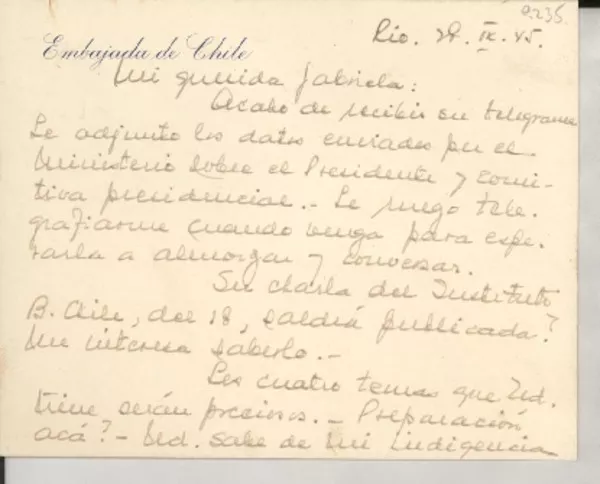 0235.
Rio. 29. IX. 45.
Embajada de Chile
Mi querida Gabriela:
Acabo de recibir su telegrama
Le adjunto los datos enviados por el
Ministerio sobre el Presidente y comi-
tiva presidencial.- Le ruego tele-
grafiarme cuando venga para espe-
rarla a almorzar y conversar.
Su charla del Instituto
B. Chile, del 18, saldrá publicada?
Me interesa saberlo.-
Los cuatro temas que Ud.
tiene serán preciosos.- Preparación
acá?- Ud. sabe de mi indigencia